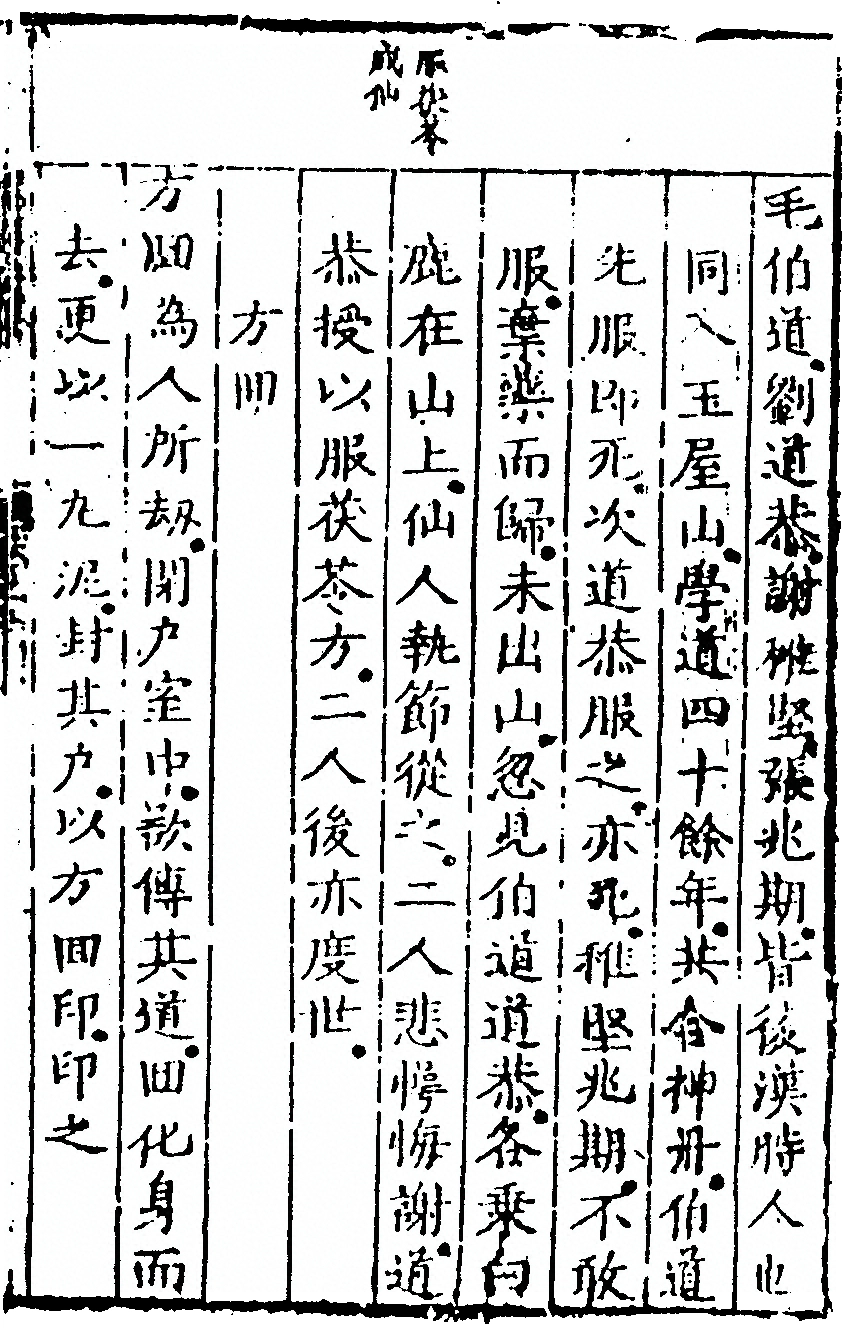 服茯苓
成仙
毛伯道劉道恭謝稚堅張兆期皆後漢時人也
同入王屋山學道四十餘年共合神丹伯道
先服即死次道恭服之亦死稚堅兆期不敢
服棄藥而歸未出山忽見伯道道恭各乘白
鹿在山上仙人執節從之二人悲愕悔謝道
恭授以服茯苓方二人後亦度世
方回
方回為人所劫閉户室中欲傳其道回化身而
去更以一丸泥封其户以方回印印之